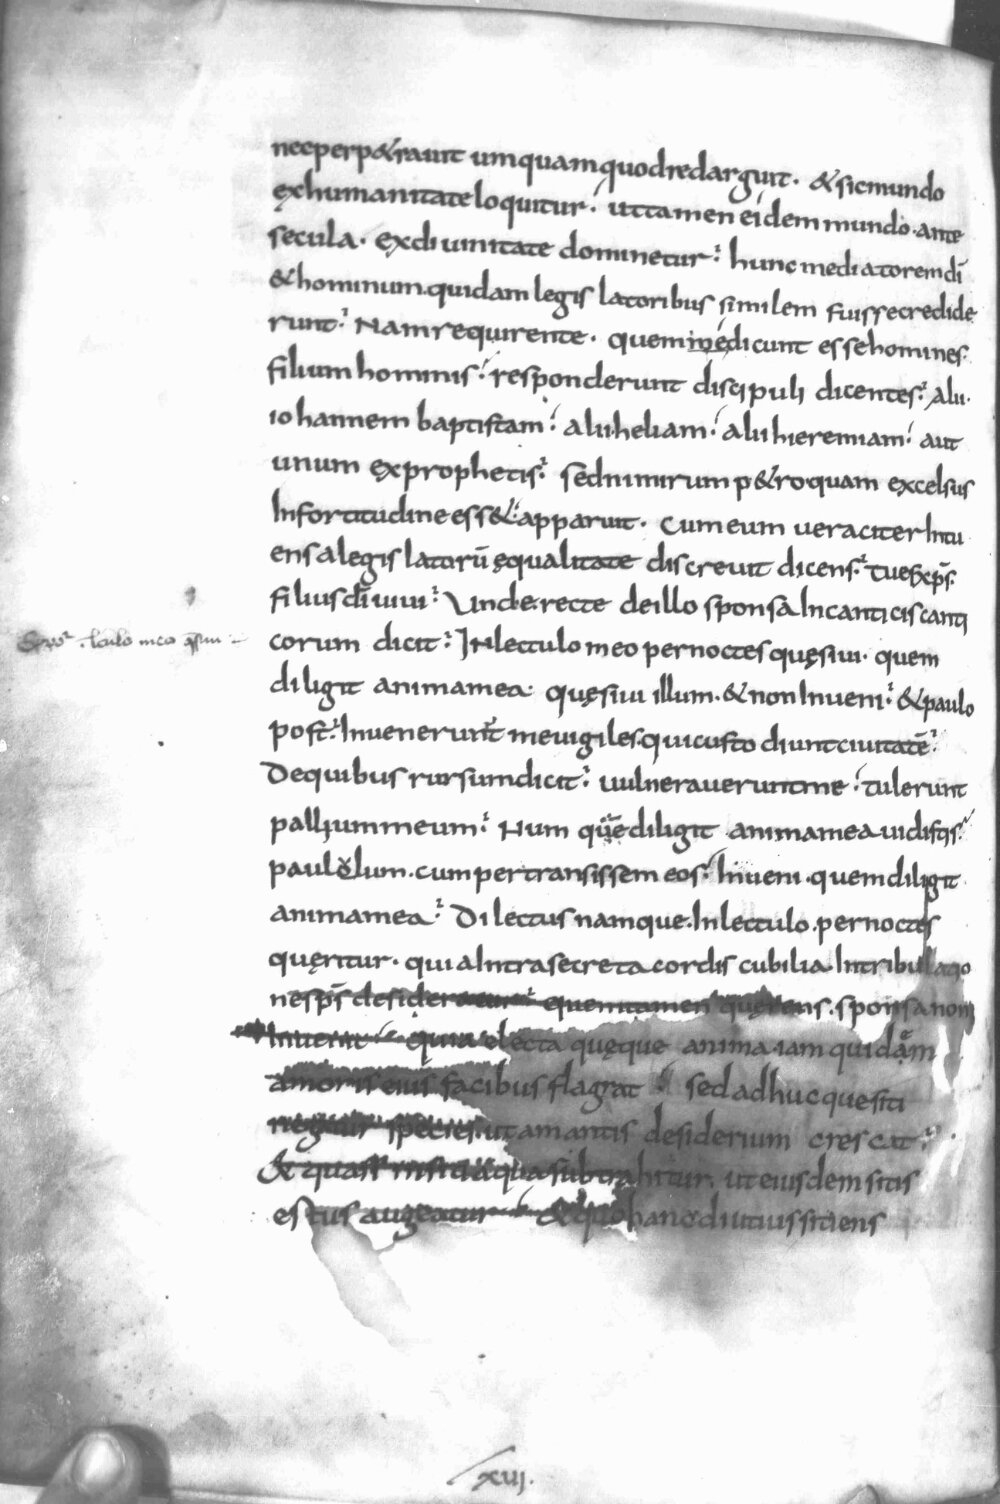 necperp&rauit umquamquodredarguit· &sicmundo
ęxhumanitateloquitur· uttamen eidem mundo·ante
secula· exdiuinitate dominetur· hunc mediatoremdī
&hominum·quidam legis latoribus similem fuissecredide
runt· Namrequirente· quem medicunt essehomines·
filium hominis· responderunt discipuli dicentes· Alii·
iohannem baptistam· alii·heliam· alii hieremiam· aut
unum ęxprophetis· sednimirum p&roquam excelsus
Infortitudine ess& apparuit· Cum eum ueraciter Intu
ens alegis latorū ęqualitate discreuit dicens· tuesxp̄s·
filiusdī uiui· Unde recte deillo sponsa Incanticis canti
corum dicit· INlectulo meo pernoctes quęsiui· quem
diligit animamea· quęsiui illum·&non Inueni· &paulo
post· Inuenerunt me uigiles·qui custodiunt ciuitatē·
Dequibus rursumdicit· uulnerauerunt me· tulerunt
pallium meum· Num quē diligit animamea uidistis·
paululum·cum pertransissem eos· Inueni·quem diligit
animamea· Dilectus namque·Inlectulo·pernoctes
quęritur· quia Intra secreta cordis cubilia·Intribulatio
nesps̄ desideratur· quem tamen quęrens·sponsa non
Inuenit· quia electa quęque anima·iam quidam
amoris eius facibus flagrat· sed adhuc quesiti
negatur species·ut amantis desiderium crescat·
& quasi sitienti aqua subtrahitur· ut eiusdem sitis
estus augeatur· & quo hanc diutius sitiens
xuj·